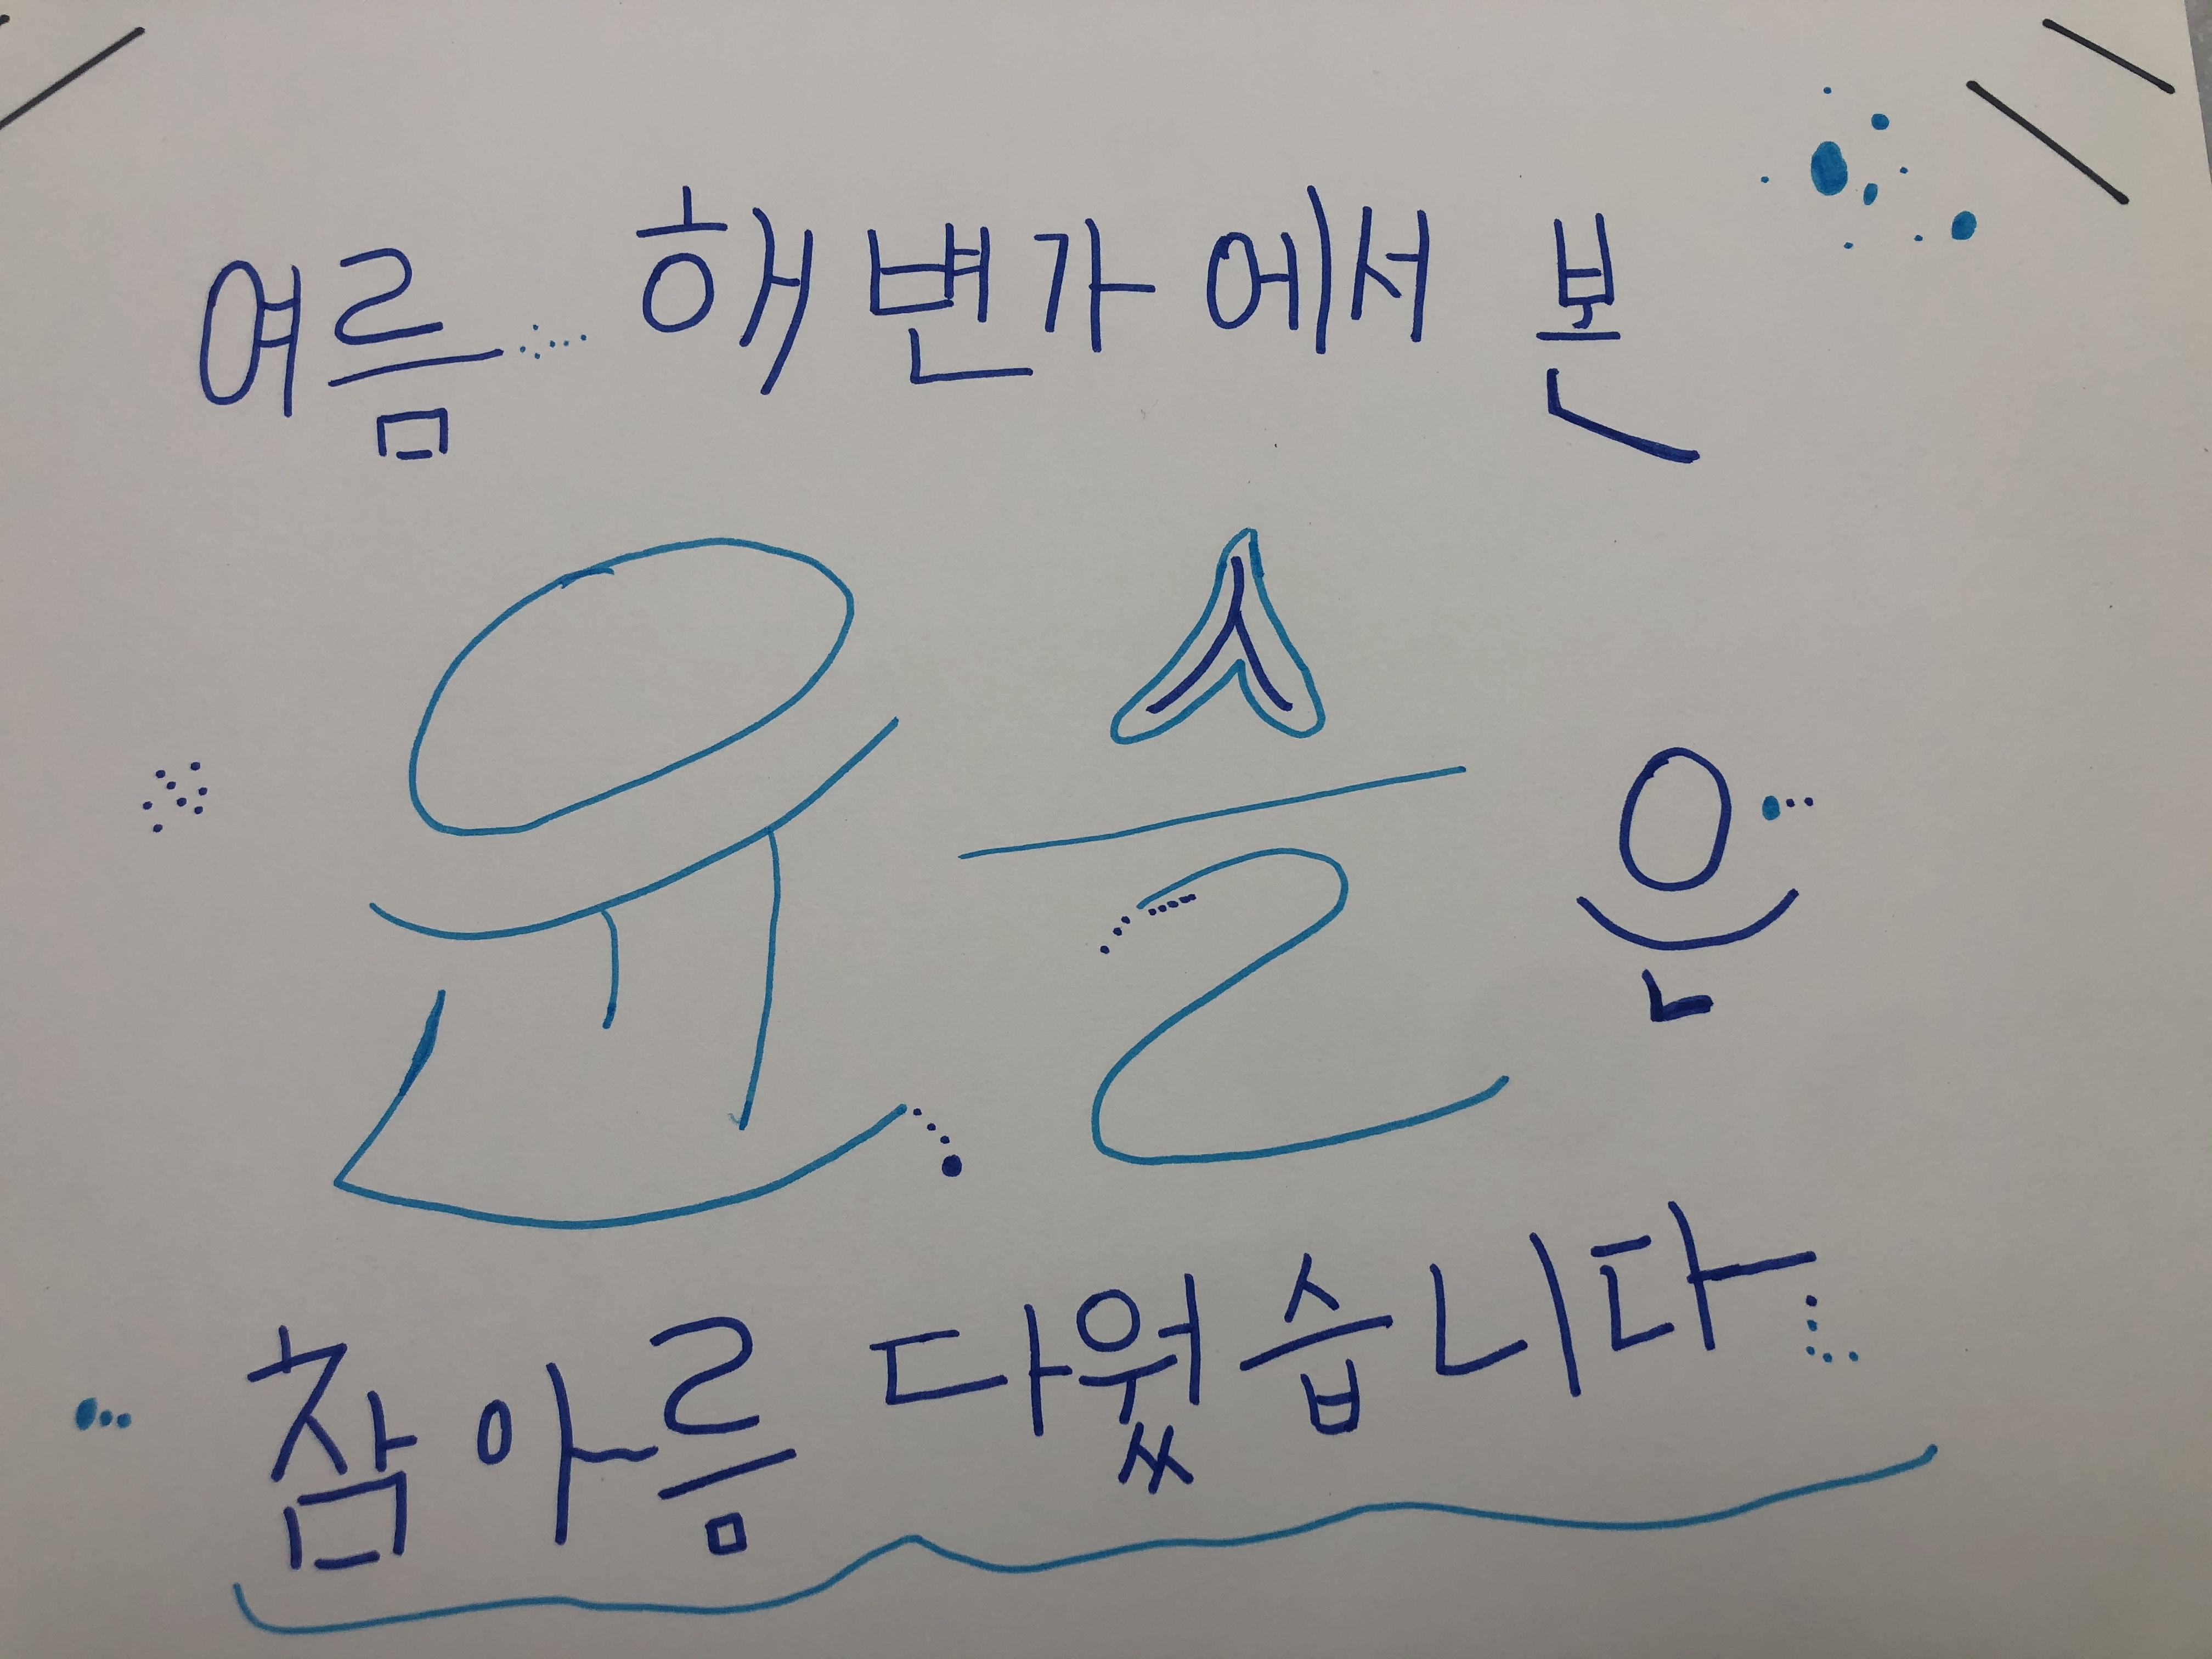 여름 해변가에서 본
윤슬은
참 아름다웠습니다